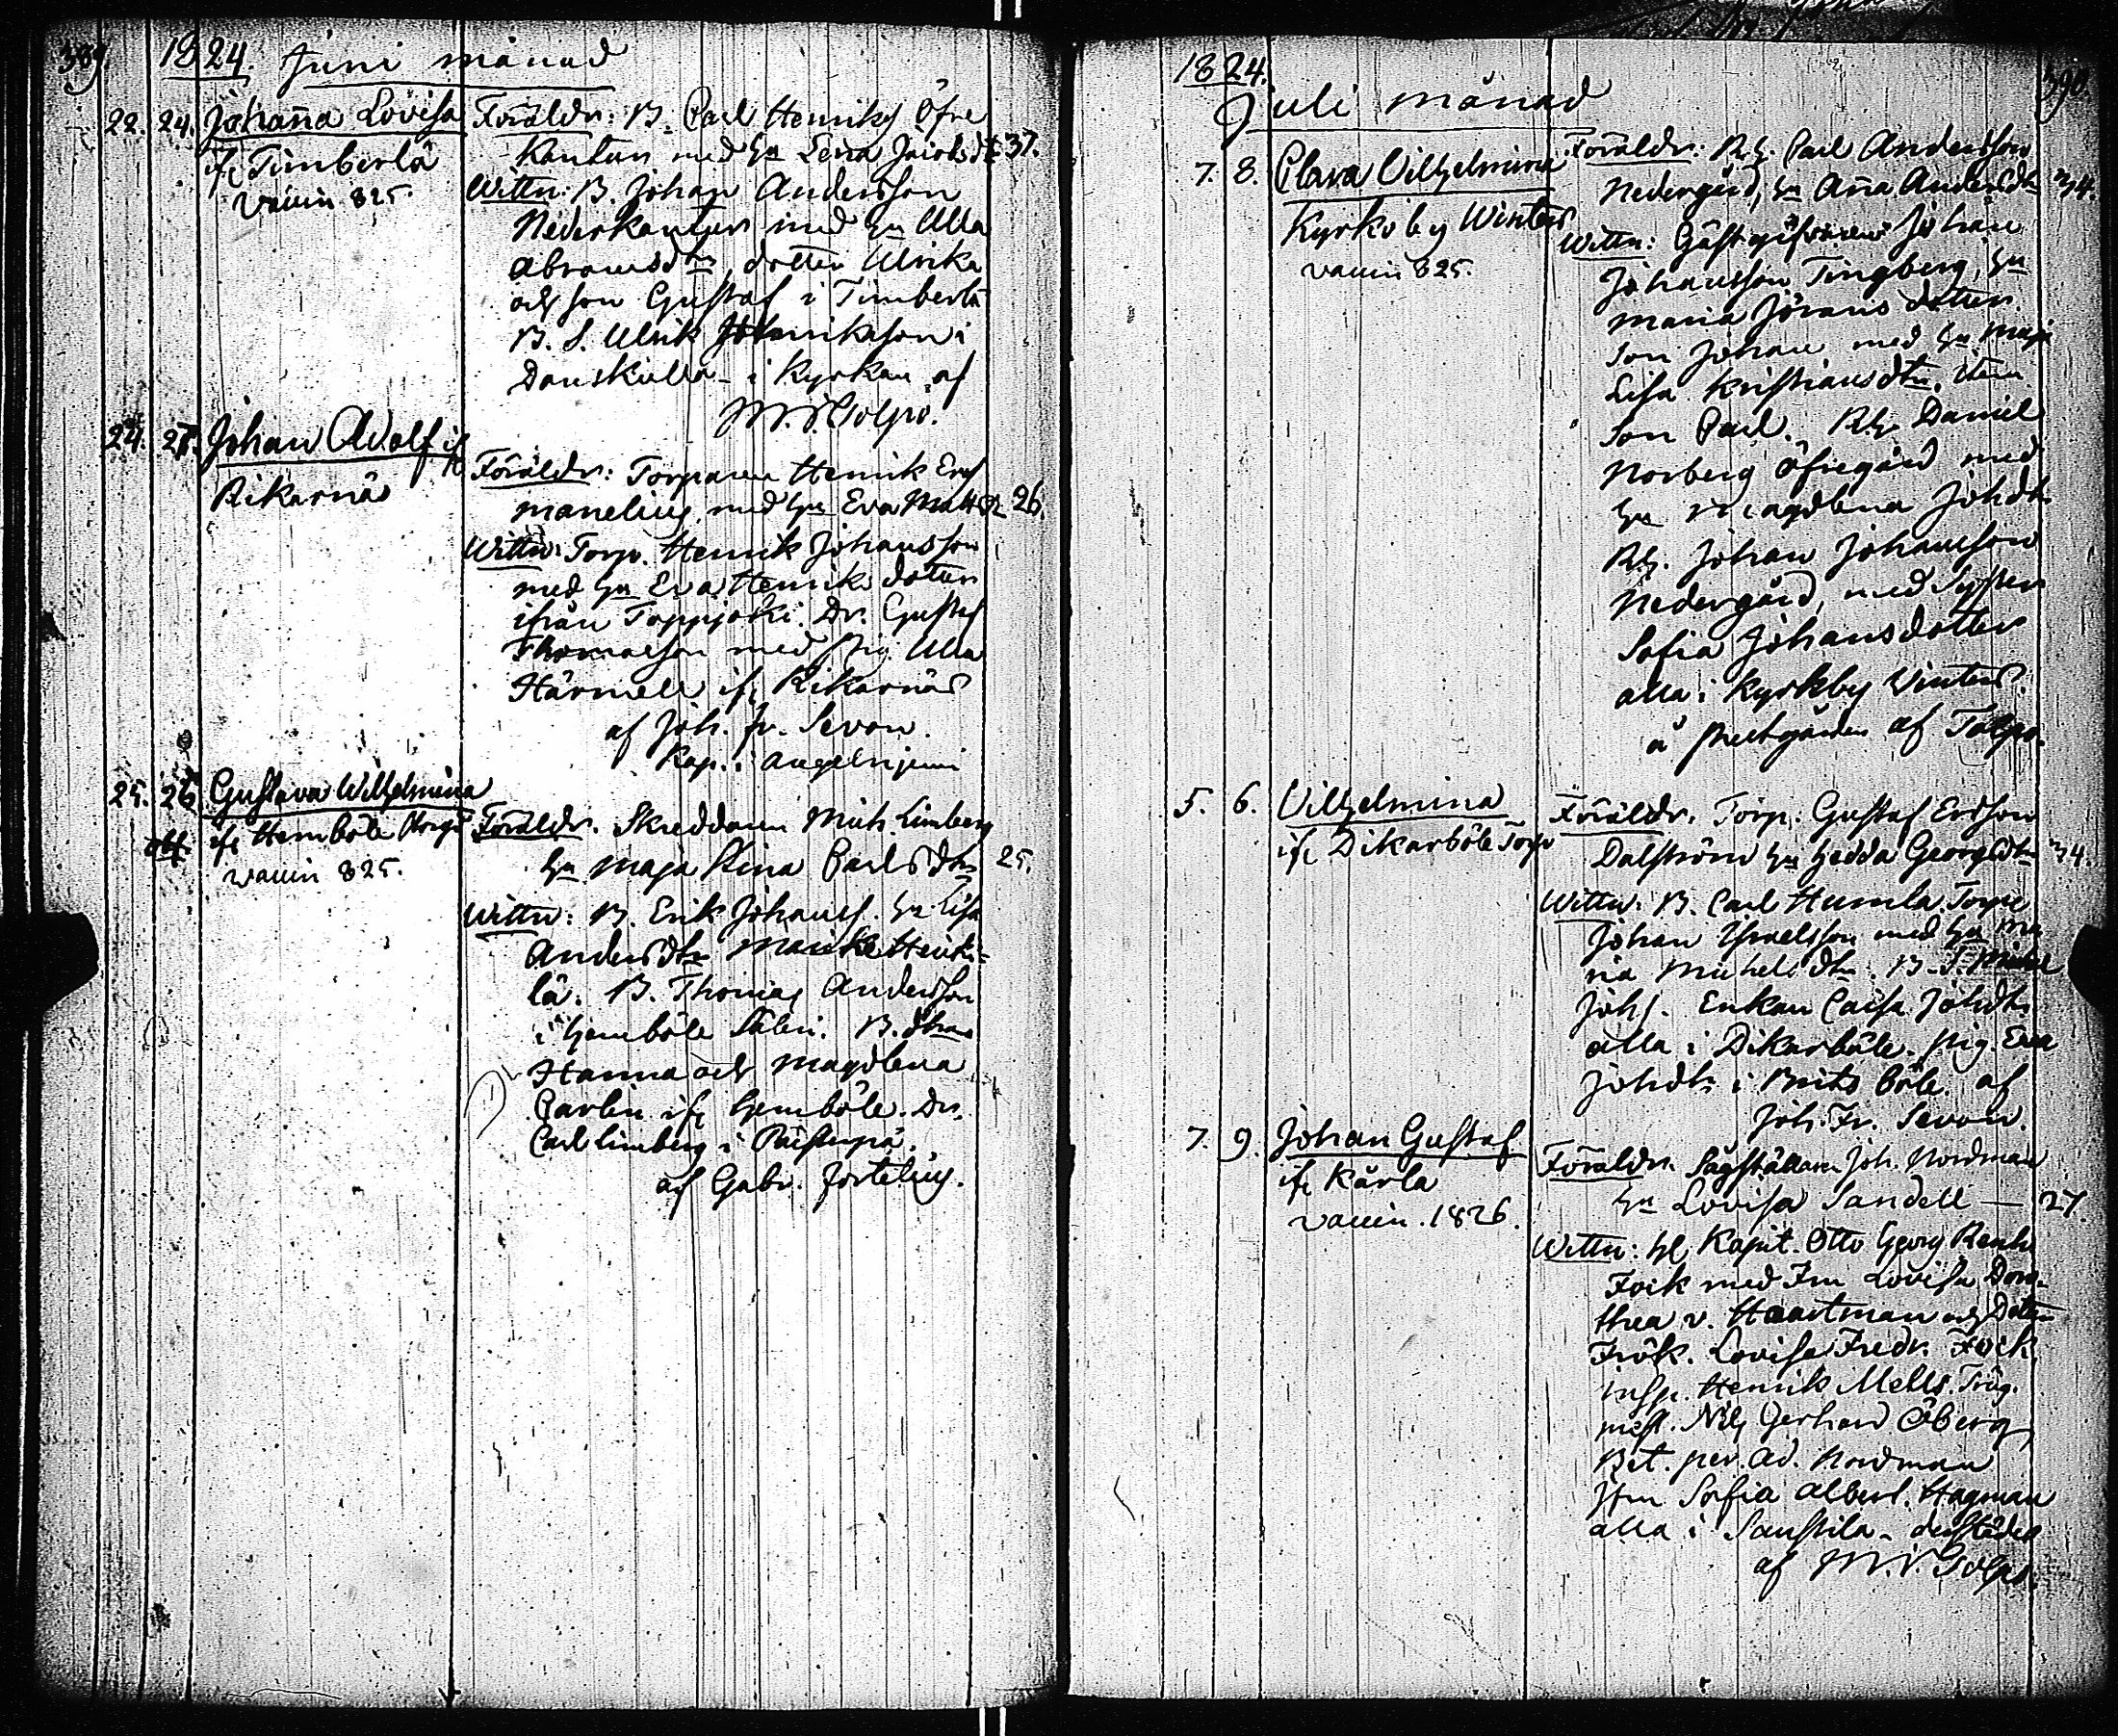 389
1824. Juni månad
22. 24. Johanna Lovisa
if. Timberlä
vaccin 825.
Föräldr: B. Carl Henriks Öfre
Kantun med Hu Lena Jacobsdtr 37.
Wittn: B. Johan Andersson
Nederkantun med Hu Ulla
Abramsdtr, dotter Ulrika
och son Gustaf i Timberlä
B. S. Ulrik Henriksson i
Danskulla - i Kyrkan af
M. V. Tolpo.
24. 27. Johan Adolf if
Rikarnäs
Föräldr: Torparen Henrik Erg
manelius, med Hu Eva Mattsdr 26.
Wittn: Torp. Henrik Johansson
med Hu Eva Henriksdotter
ifrån Toppjoki. Dr. Gustaf
Thomasson med pig. Ulla
Härmell if. Rikarnäs
af Joh. Fr. Sevon.
Kap. i Angelniemi
25. 26. Gustava Wilhelmina
obf. if. Hemböle
vaccin 825.
Föräldr. Skreddaren Mich. Limberg
Hu Maja Stina Carlsdtr 25.
Wittn: B. Erik Johanss. Hu Lisa
Andersdtr Heiki-
lä. B. Thomas Andersson
i Hemböle Säteri. B. dtrar
Hanna och Magdlena
Carlin if. Hemböle. Dr.
Carl Limberg i
af Gabr. Fortelius.
390
1824.
Juli månad
7. 8. Clara Vilhelmina
Kyrkoby Winters
vaccin 825.
Föräldr: Rh. Carl Andersson
Nedergård, Hu Anna Andersdtr 34.
Wittn: Gästgifvaren Johan
Johansson Tingberg, Hu
Maria Jörans dotter
Son Johan med Hu Maja
Lisa Kristiansdtr, item
Son Carl. Rh. Daniel
Norberg Öfregård med
Hu Magdlena Johdtr
Rh. Johan Johansson
Nedergård, med Syster
Sofia Johansdotter
alla i Kyrkby Winters.
å Prestgården af Tolpo.
5. 6. Vilhelmina
if. Dikarböle Torp
Föräldr. Torp. Gustaf Ersson
Dalström Hu Hedda Georgsdtr 34.
Wittn. B. Carl Humla Torp.
Johan Israelsson med Hu Ma
ria Michelsdtr. B. S. Michel
Johs. Enkan Caisa Johdtr
alla i Dikarböle. pig. Eva
Johdtr i Brits böle af
Joh. Fr. Sevon.
7. 9. Johan Gustaf
if. Kårla
vaccin. 1826.
Föräldr. Sågställaren Joh. Nordman
Hu Lovisa Sandell — 27.
Wittn: H. Kapit. Otto Georg Reinh.
Fock med Fru Lovisa Doro-
thea v. Haartman och Dottern
Frök. Lovisa Fredr. Fock,
insp. Henrik Mells. Träg.
mäst. Nils Gerhard Öberg
Bet. per. Ad. Nordman
Jfru Sofia Albert. Hagman
alla i Sanstila - derstädes
af M. V. Tolpo.